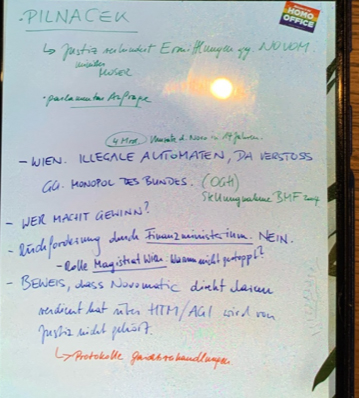 - PILNACEK
HOMO
OFFICE
↳ Justiz verhindert Ermittlungen gg. NOVOM.
Minister
MOSER
- parlamentar. Anfrage
4 Mrd. Umsatz d. Novo in 14 Jahren.
- WIEN. ILLEGALE AUTOMATEN, DA VERSTOSS
GG. MONOPOL DES BUNDES. (OGH)
Stellungnahme BMF
- WER MACHT GEWINN?
- Rückforderung durch Finanzministerium. NEIN.
- Rolle Magistrat Wien. Warum nicht gestoppt?
- BEWEIS, dass Novomatic direkt daran
verdient hat über HTM/AGI wird von
Justiz nicht gehört.
↳ Protokolle